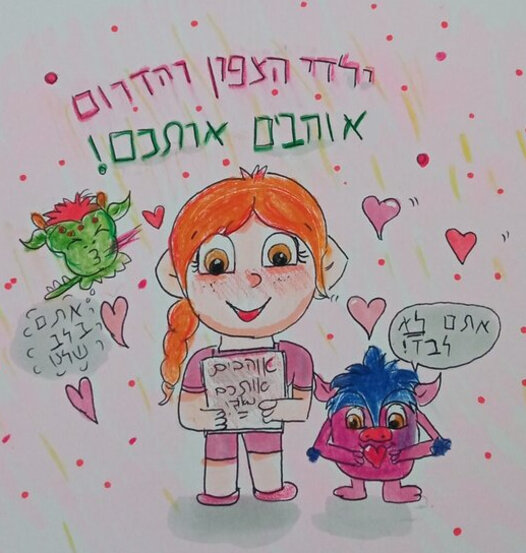 ילדי הצפון והדרום
אוהבים אתכם!
אתם
בלב
שלנו
אתם לא
לבד!
אוהבים
אותכם